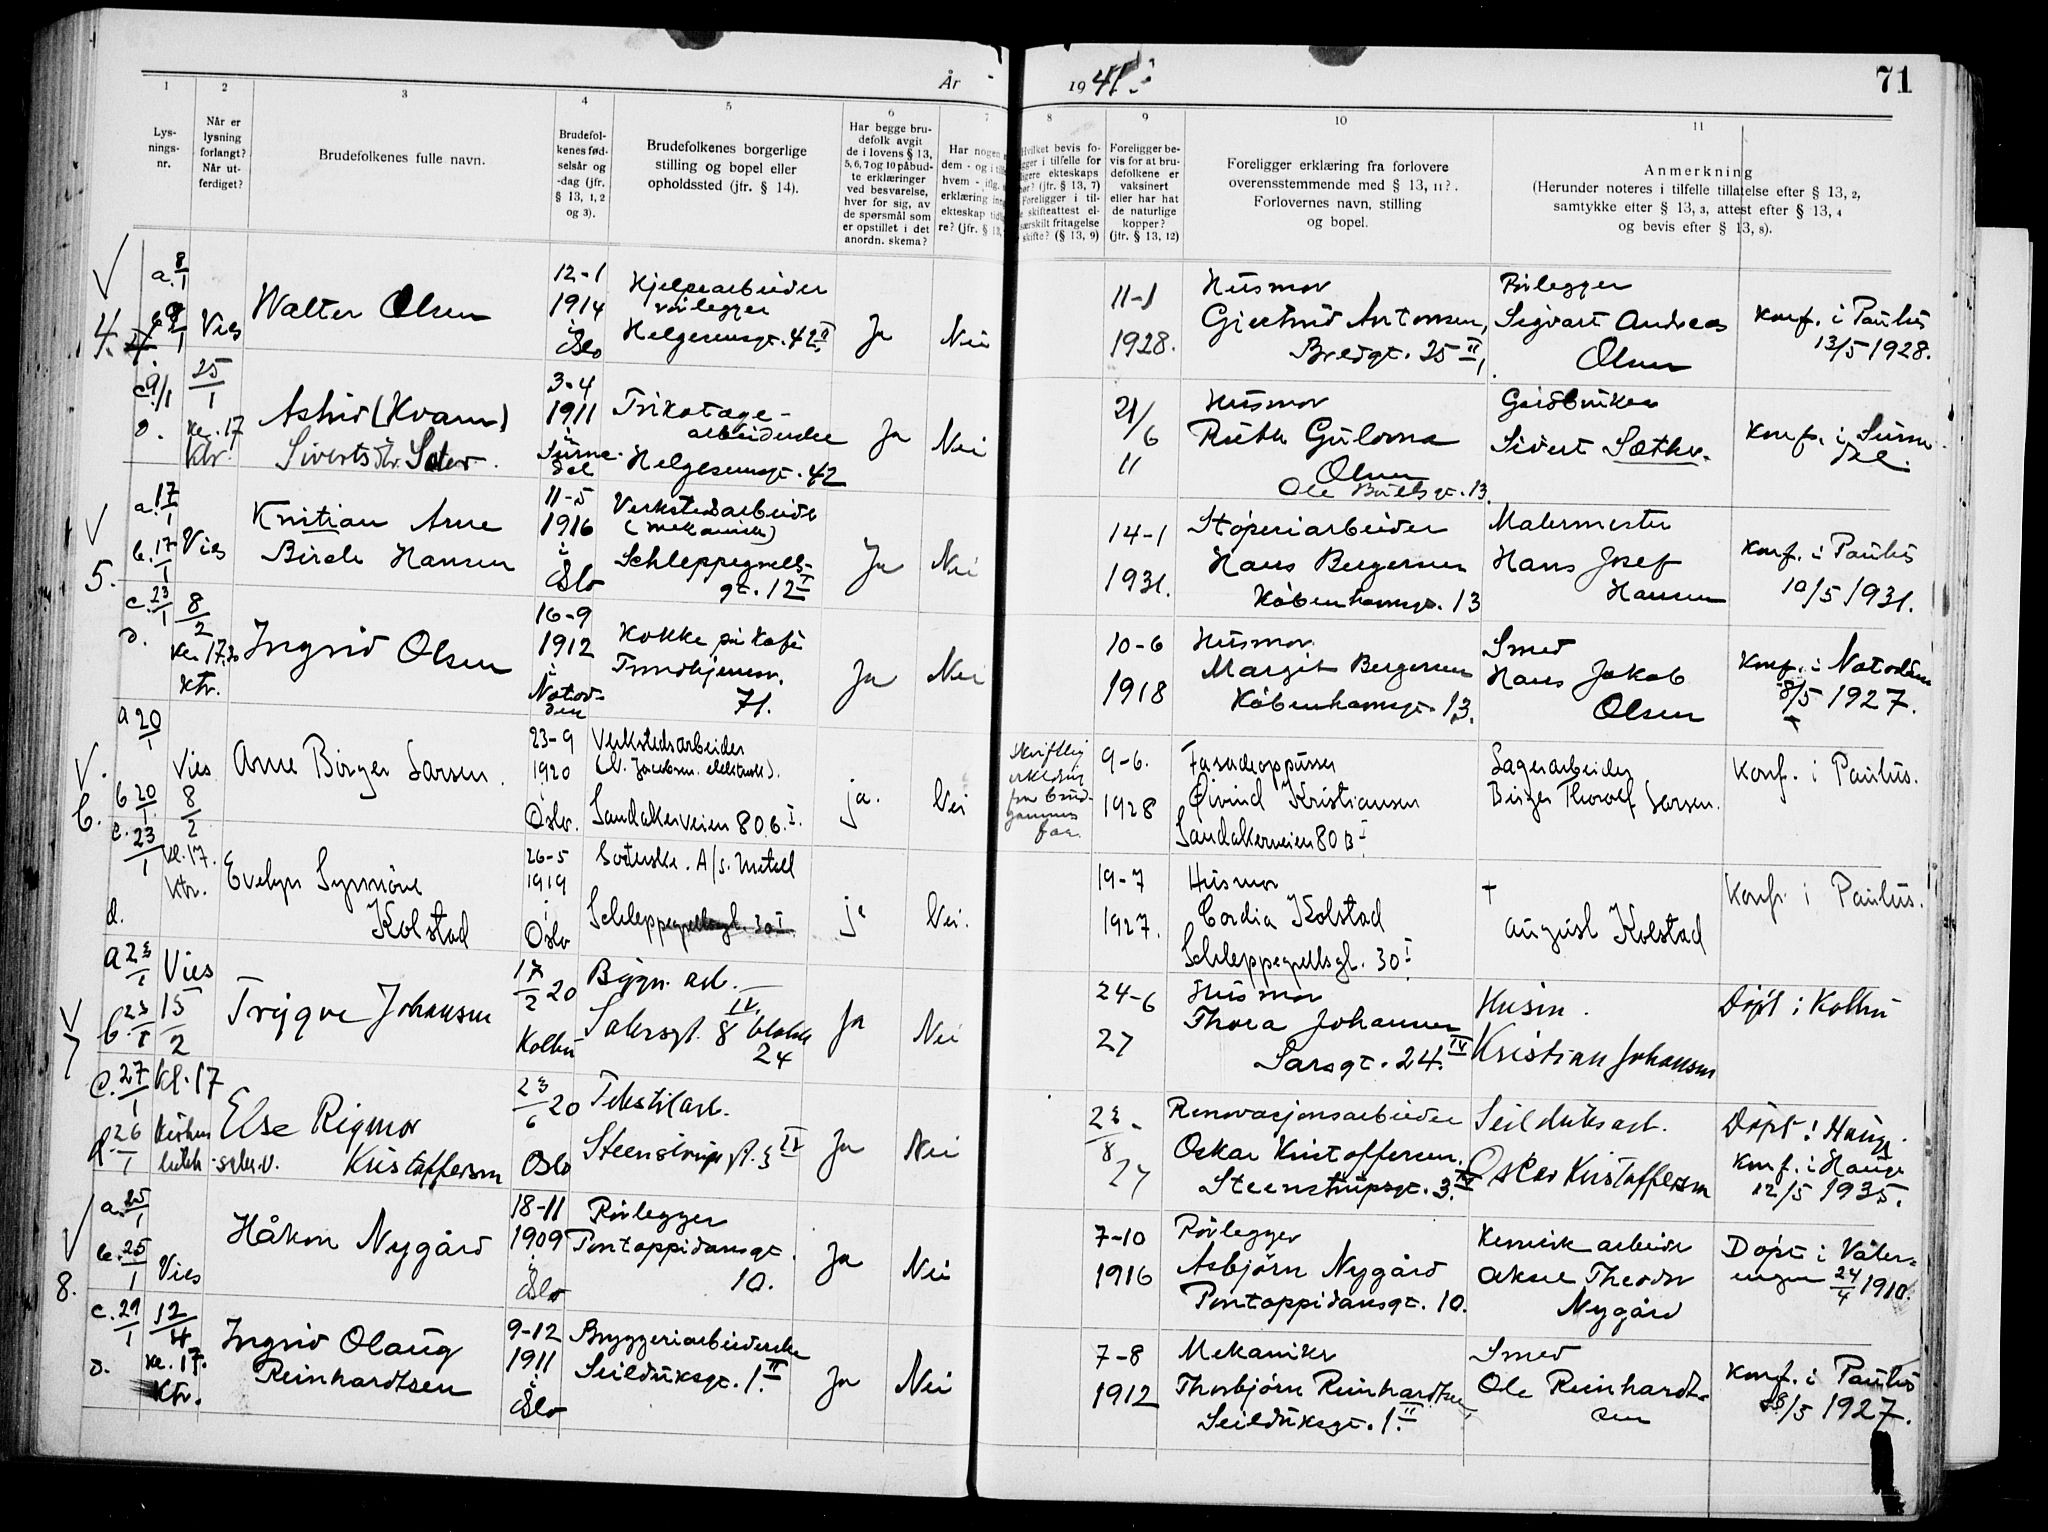 År 1941.
71
1 2 3 4 5 6 7 8 9 10 11
Lys-
nings-
nr.
Når er
lysning
forlangt?
Når ut-
ferdiget?
Brudefolkenes fulle navn.
Brudefol-
kenes fød-
selsår og
-dag (jfr.
§ 13, 1, 2
og 3).
Brudefolkenes borgerlige
stilling og bopel eller
opholdssted (jfr. § 14).
Har begge bru-
defolk avgit
de i lovens § 13,
5, 6, 7 og 10 påbud-
te erklæringer
ved besvarelse,
hver for sig, av
de spørsmål som
er opstillet i det
anordn. skema?
Har nogen
dem - og i
hvem -
erklæring
ekteskap
re? (jfr. § 13,
Hvilket bevis fo-
i tilfelle for
ekteskaps
(jfr. § 13, 7)
Foreligger i til-
skifteattest el-
særskilt fritagelse
skifte? (§ 13, 9)
Foreligger be-
vis for at bru-
defolkene er
vaksinert
eller har hat
de naturlige
kopper?
(jfr. § 13, 12)
Foreligger erklæring fra forlovere
overensstemmende med § 13, 11?.
Forlovernes navn, stilling
og bopel.
Anmerkning
(Herunder noteres i tilfelle tillatelse efter § 13, 2,
samtykke efter § 13, 3, attest efter § 13, 4
og bevis efter § 13, 8).
4.
a. 8/1
Vies
25/1
Walter Olsen
12-1
1914
i
Oslo
Hjelpearbeider
rørlegger
Helgesensgt. 42 II
Ja
Nei
11-1
1928.
Husmor
Gjertrud Antonsen,
Bredgt. 25 II
Rørlegger
Sigvart Andreas
Olsen
Konf. i Paulus
13/5 1928.
c. 9/1
d.
kl. 17
Ktr.
Astrid (Kvam)
Sivertsdtr. Sæter.
3-4
1911
i
Surna-
dal
Trikotage-
arbeiderske
Helgesensgt. 42
Ja
Nei
21/
6
11
Husmor
Ruth Gulorna
Olsen
Ole Bullsgt. 13.
Gårdbruker
Sivert Sæther.
Konf. i Surna-
dal.
5.
a. 17/1
b. 17/1
Vies
Kristian Arne
Birch Hansen
11-5
1916
i
Oslo
Verkstedarbeider
(mekanisk)
Schleppegrells-
gt. 12 I
Ja
Nei
14-1
1931.
Støperiarbeider
Hans Bergersen
Københavnsgt. 13
Malermester
Hans Josef
Hansen
Konf. i Paulus
10/5 1931.
c. 23/1
d.
8/2
kl. 17.30
Ktr.
Ingrid Olsen
16-9
1912
i
Notod-
den
Kokke på Kafe
Trondhjemsv.
71.
Ja
Nei
10-6
1918
Husmor
Margit Bergersen
Københavnsgt. 13.
Smed
Hans Jakob
Olsen
Konf. i Notodden
8/5 1927.
6.
a 20/1
b 20/1
Vies
8/2
Arne Birger Larsen.
23-9
1920
Oslo.
Verkstedsarbeider
(N. Jacobsen elektrisk).
Sandakerveien 80 B. I.
ja.
Nei
Skriftlig
erklæring
fra brud-
gommens
far.
9-6.
1928
Fasadeoppusser
Øivind Kristiansen
Sandakerveien 80 B I
Lagerarbeider
Birger Thorolf Larsen.
Konf. i Paulus.
c. 23/1
d.
kl. 17.
Ktr.
Evelyn Synnøve
Kolstad
26-5
1919
i
Oslo
Lodderske. A/s. Metall
Schleppegrellsgt. 30 I.
ja
Nei.
19-7
1927.
Husmor
Cordia Kolstad
Schleppegrellsgt. 30 I
†
August Kolstad
Konf. i Paulus.
7
a 23/1
b. 23/1
Vies
15/2
Trygve Johansen
17/2 20
Kolbu
Bygn. arb.
Sarsgt. 8 IV blokk
24
Ja
Nei
24-6
27
Husmor
Thora Johansen
Sarsgt. 24. IV
Husm.
Kristian Johansen
Døpt i Kolbu
c. 27/1
d. 26/1
Kl. 17
Else Rigmor
Kristoffersen
23/6 20
Oslo
Tekstilarb.
Steenstrupsgt. 3 IV
Ja
Nei
23/8 -
27
Renovasjonsarbeider
Oskar Kristoffersen.
Steenstrupsgt. 3. IV
Seilduksarb.
Oskar Kristoffersen
Døpt i Hauge.
Konf. i Hauge
12/5 1935.
8.
a. 25/1
b. 25/1
Vies
Håkon Nygård
18-11
1909
i
Oslo
Rørlegger
Pontoppidansgt.
10.
Ja
Nei
7-10
1916
Rørlegger
Asbjørn Nygård
Pontoppidansgt. 10.
Kemisk arbeider
Aksel Theodor
Nygård
Døpt i Våler-
engen 24/4 1910.
c. 29/1
d.
12/4
kl. 17.
Ktr.
Ingrid Olaug
Reinhardtsen
9-12
1911
i
Oslo
Bryggeriarbeiderske
Seilduksgt. 1. II
Ja
Nei
7-8
1912
Mekaniker
Thorbjørn Reinhardtsen,
Seilduksgt. 1. II
Smed
Ole Reinhardt-
sen
Konf. i Paulus
/5 1927.